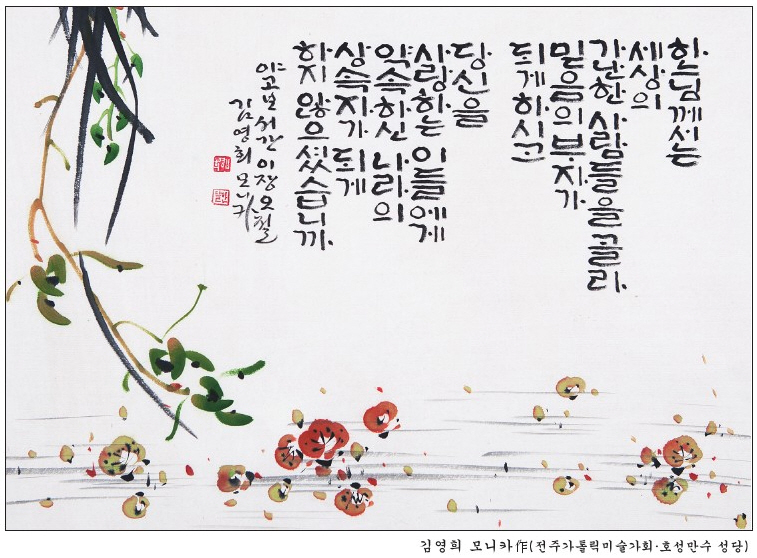 하느님께서는
세상의
가난한 사람들을 골라
믿음의 부자가
되게 하시고
당신을
사랑하는 이들에게
약속하신 나라의
상속자가 되게
하지 않으셨습니까.
야고보서간 이장오절
김영희 모니카
김영희 모니카 作(전주가톨릭미술가회·호성만수 성당)